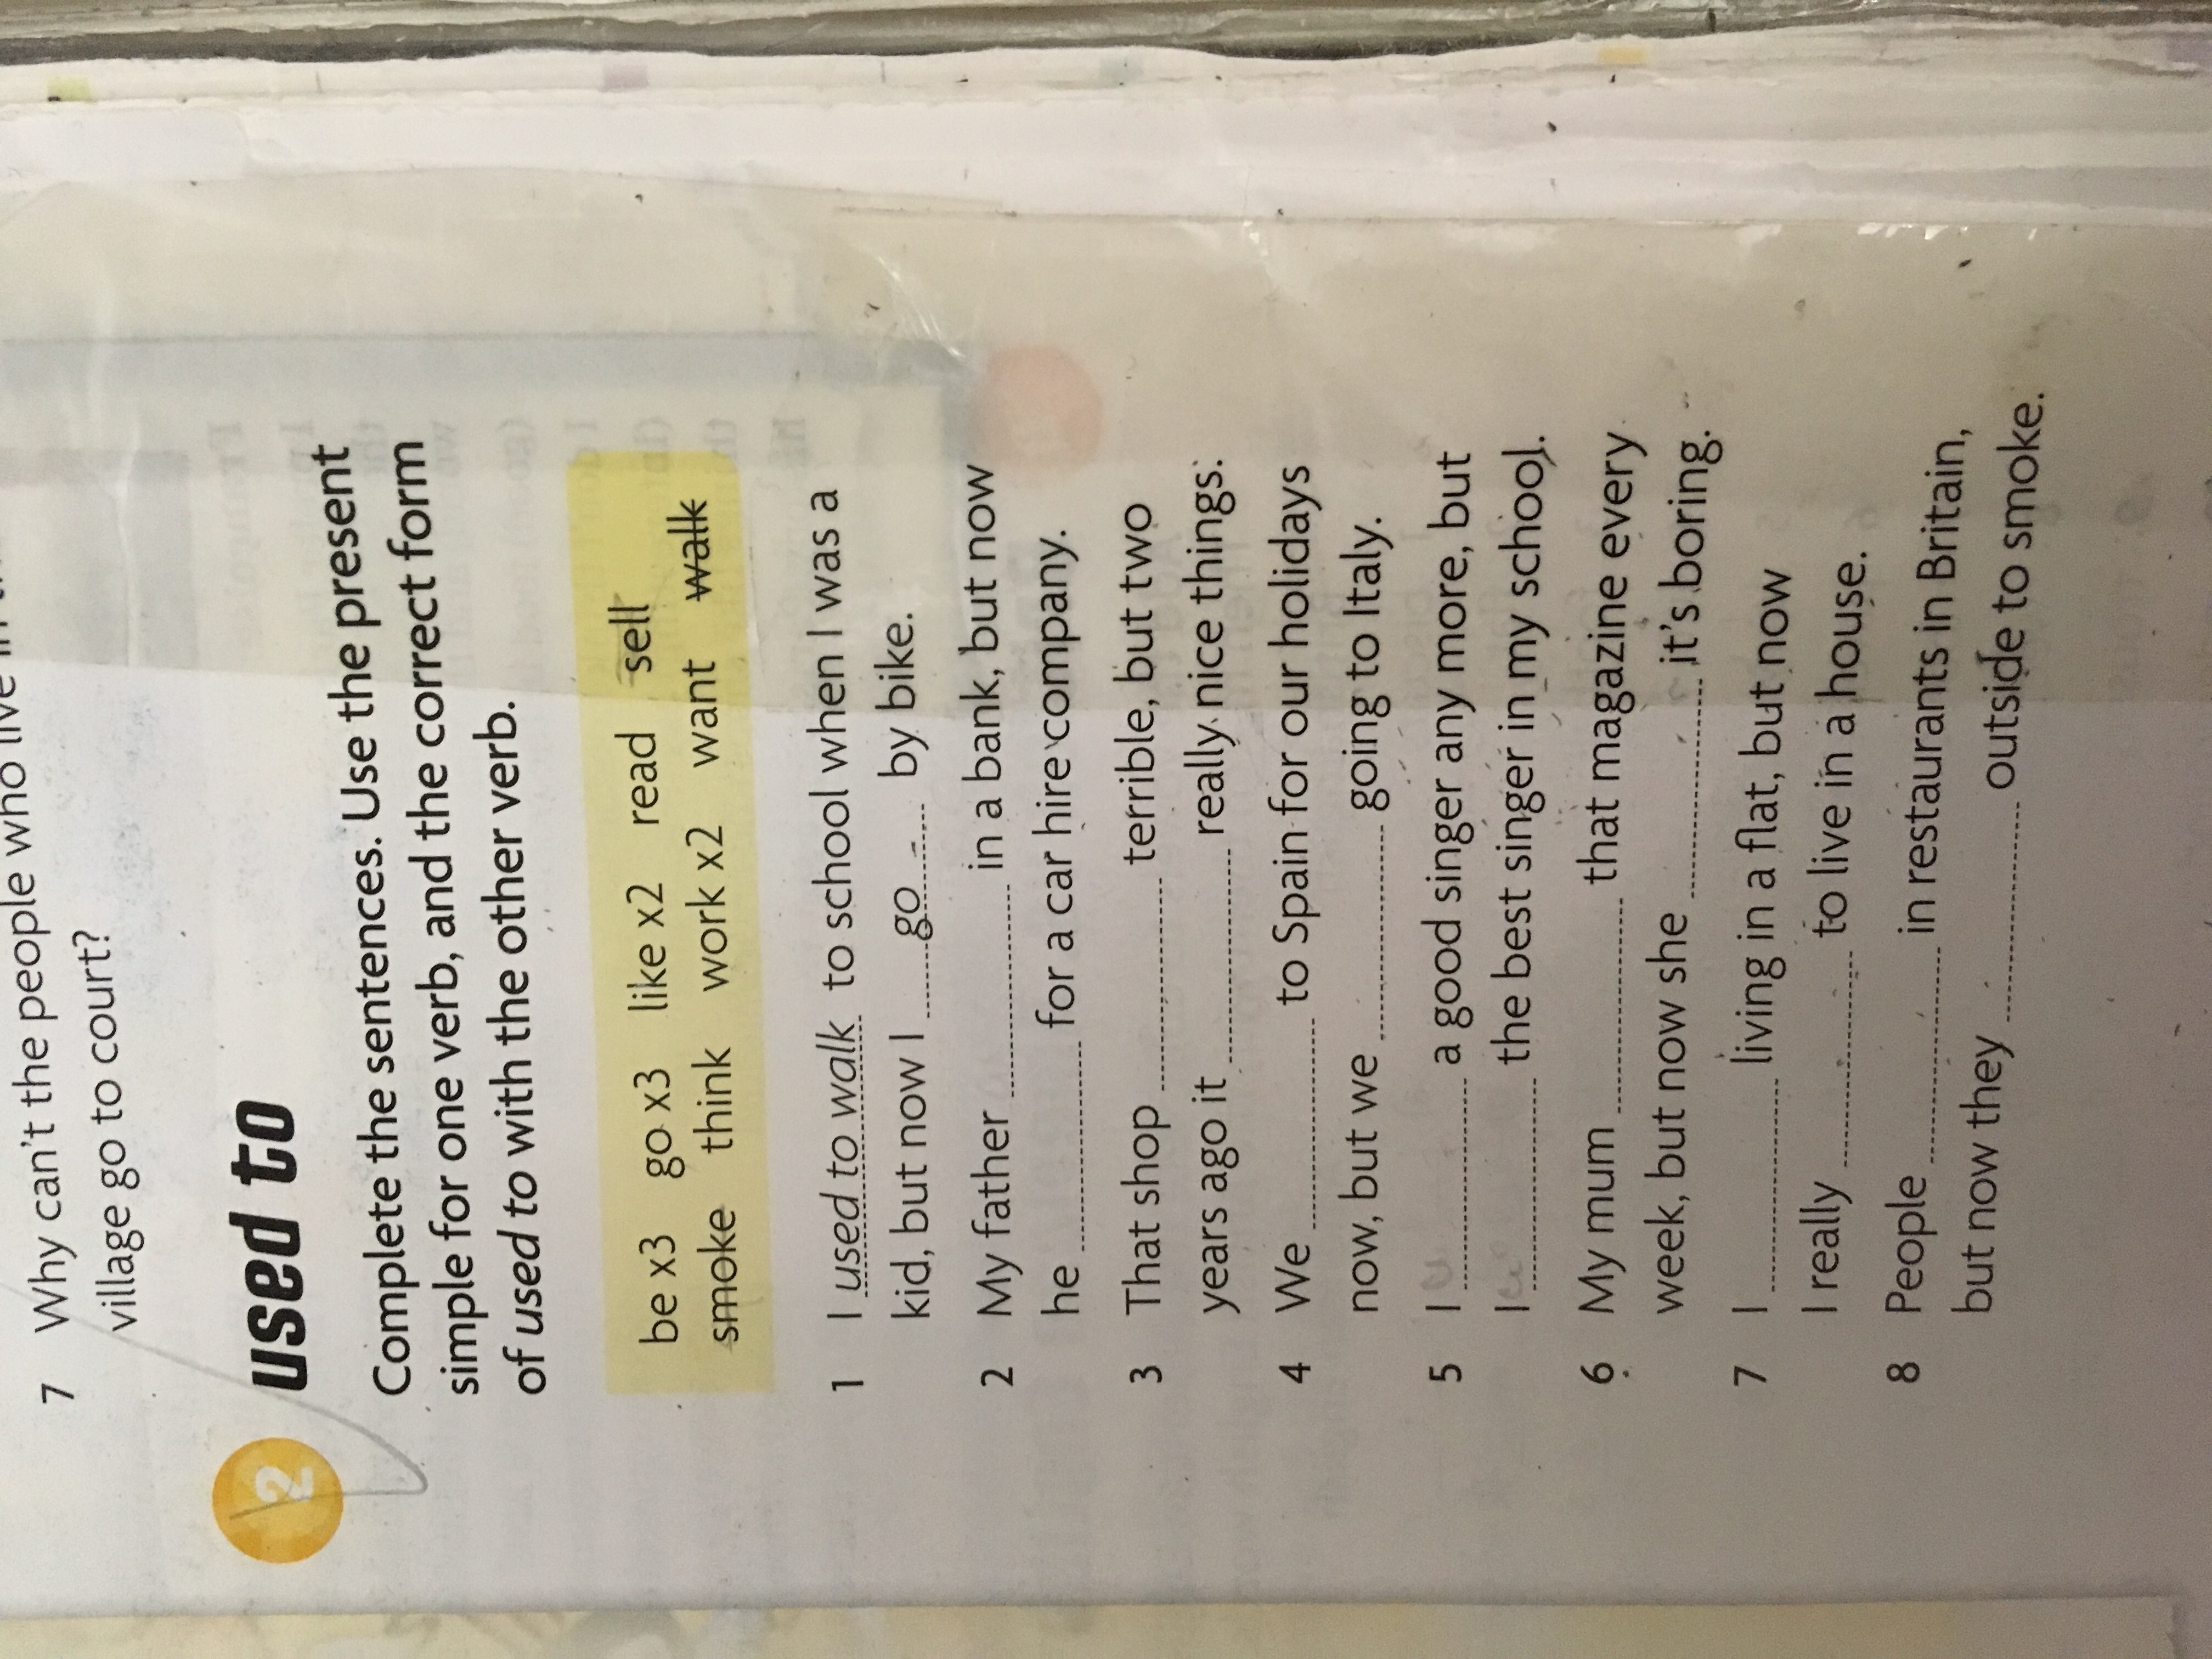 7 Why can't the people who live
village go to court?
2 used to
Complete the sentences. Use the present
simple for one verb, and the correct form
of used to with the other verb.
be x3 go x3 like x2 read sell
smoke think work x2 want walk
1 I used to walk to school when I was a
kid, but now I go by bike.
2 My father ........ in a bank, but now
he ........ for a car hire company.
3 That shop ........ terrible, but two
years ago it ........ really nice things.
4 We ........ to Spain for our holidays
now, but we ........ going to Italy.
5 I ........ a good singer any more, but
I ........ the best singer in my school.
6 My mum ........ that magazine every
week, but now she ........ it's boring.
7 I ........ living in a flat, but now
I really ........ to live in a house.
8 People ........ in restaurants in Britain,
but now they ........ outside to smoke.